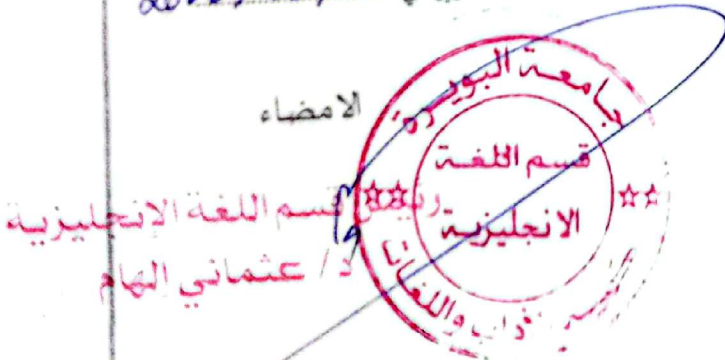 الامضاء
جامعة البويرة
قسم اللغة
الانجليزية
واللغات
رئيس قسم اللغة الإنجليزية
د/ عثماني إلهام